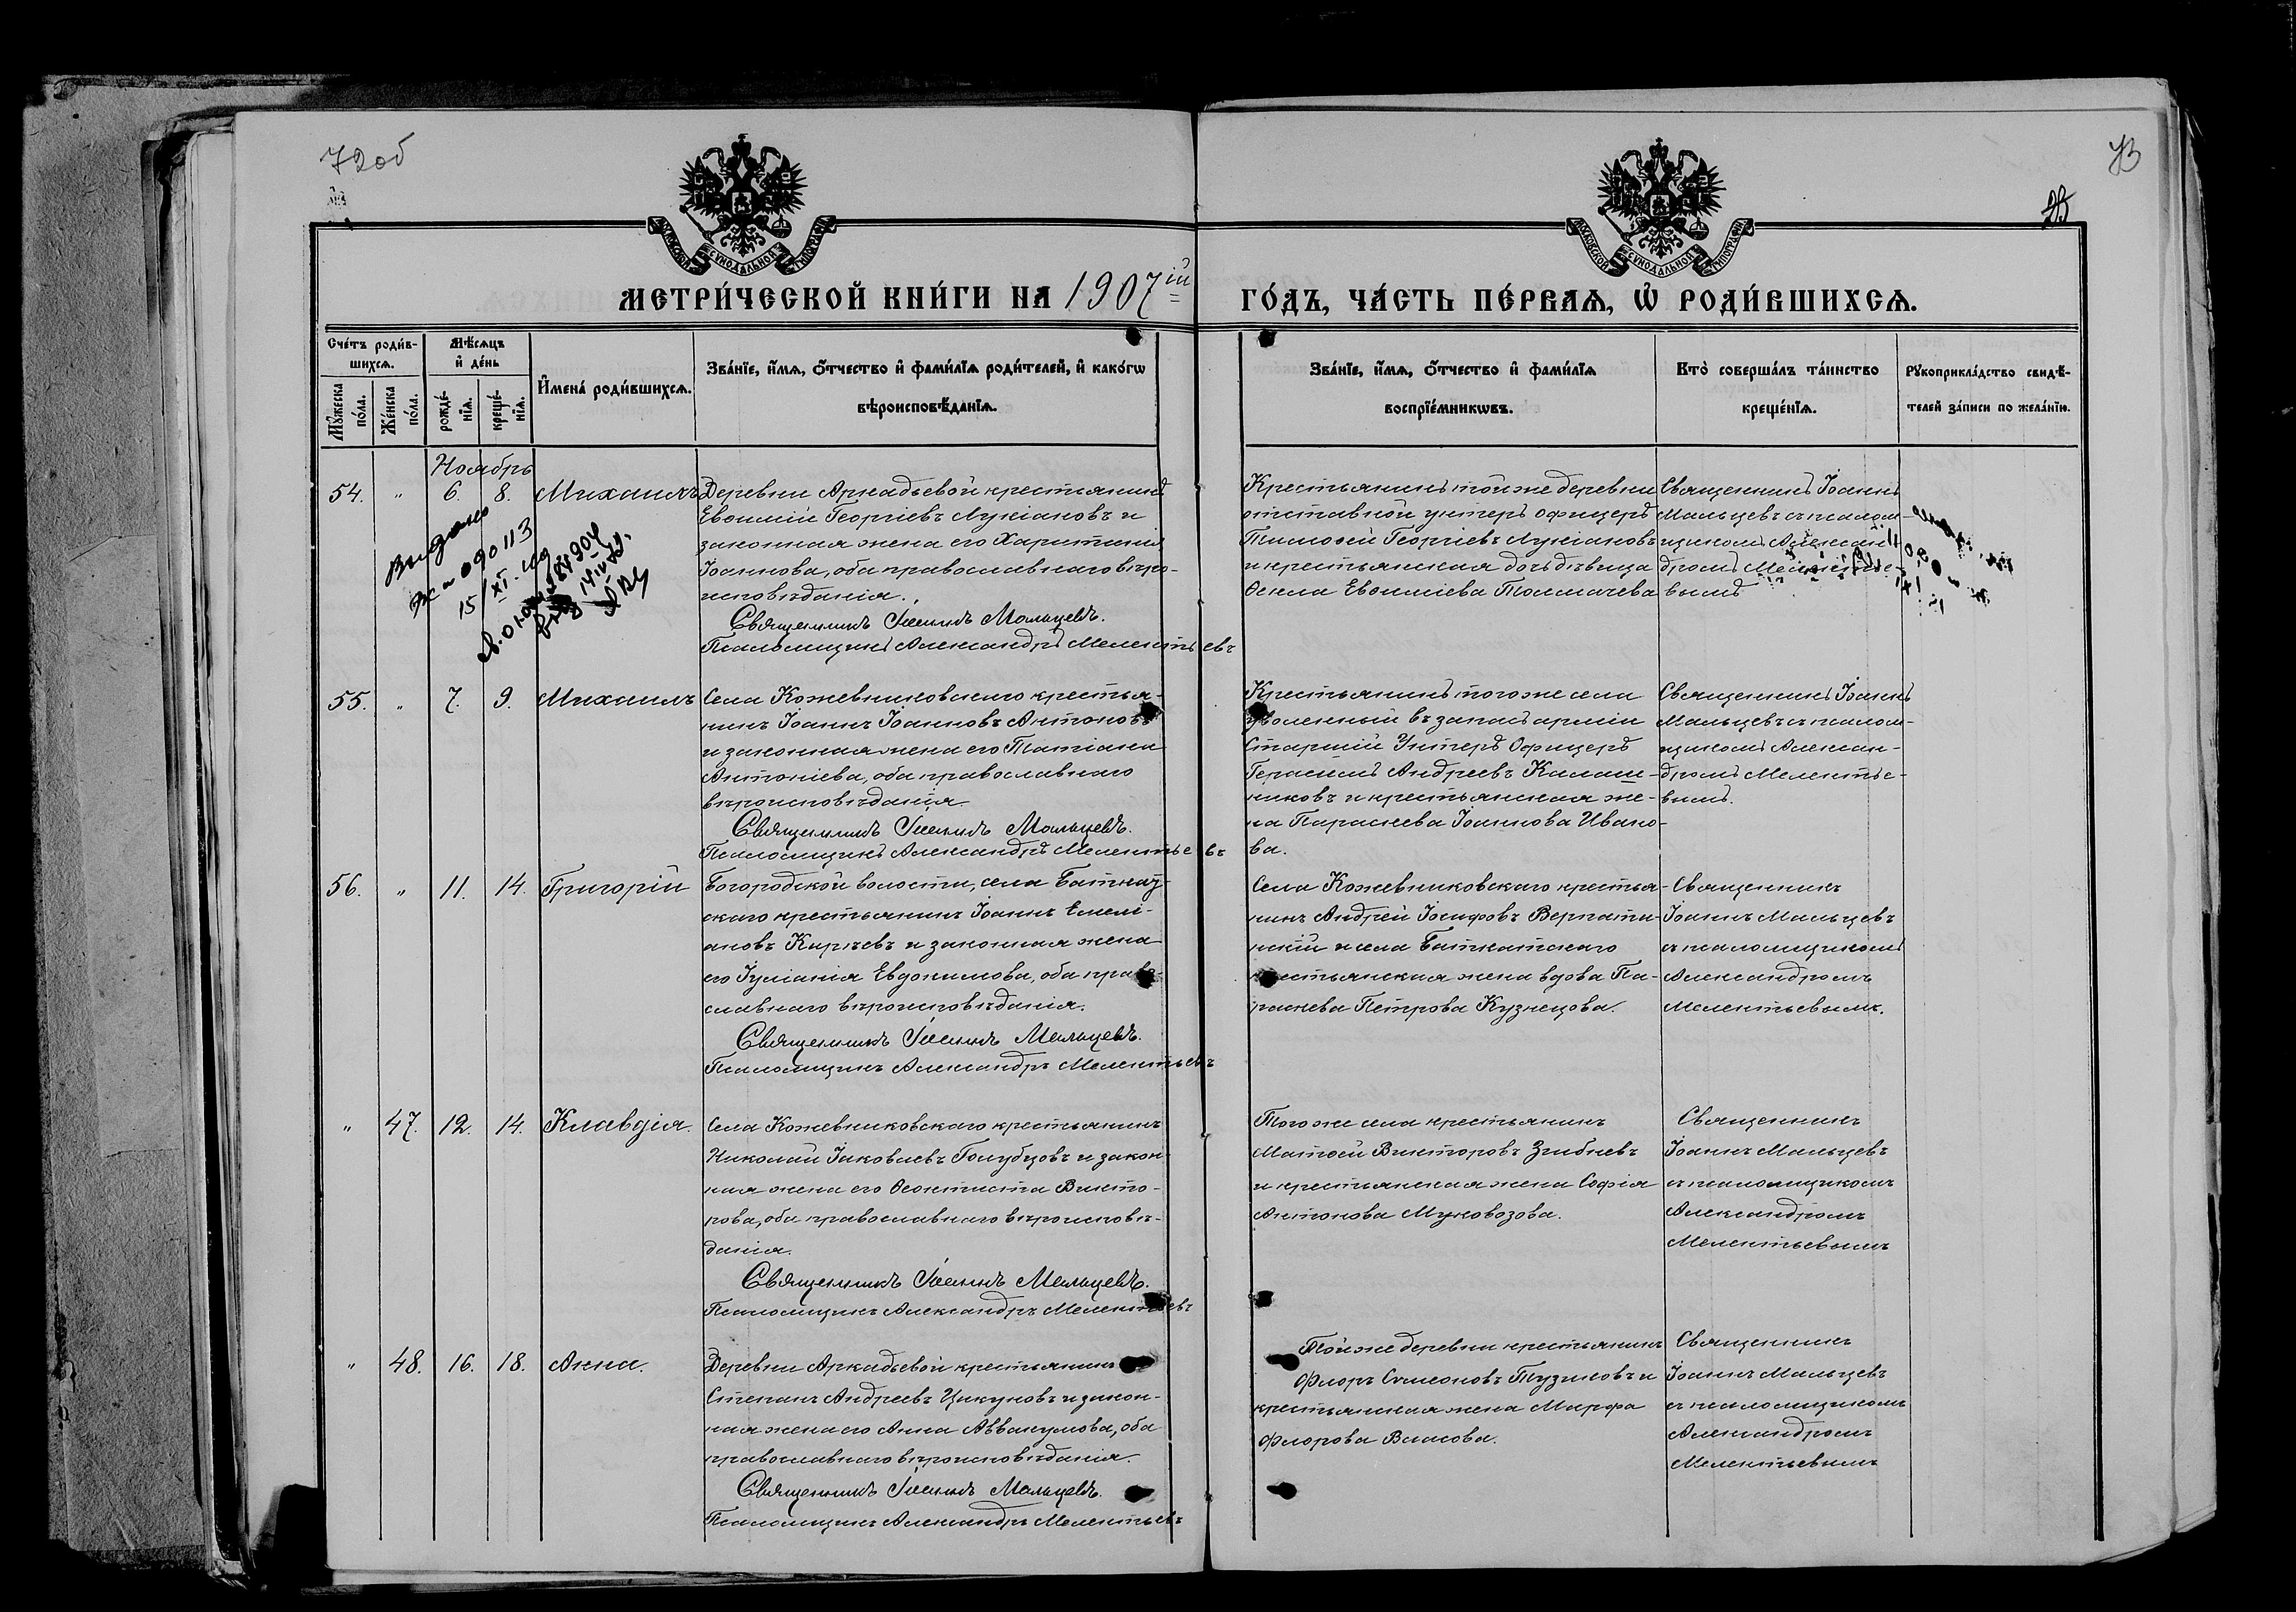 72об
73
МОСКОВСКОЙ СУНОДАЛЬНОЙ ТИПОГРАФІИ
МОСКОВСКОЙ СУНОДАЛЬНОЙ ТИПОГРАФІИ
МЕТРИ́ЧЕСКОЙ КНИ́ГИ НА 1907ій ГО́ДЪ, ЧА́СТЬ ПЕ́РВАѦ, Ѡ҆ РОДИ́ВШИХСѦ.
Сче́тъ роди́в-
шихсѧ.
Мꙋ́жеска по́ла.
Же́нска по́ла.
Мѣ́сѧцъ
и҆ де́нь
рожде́-
нїѧ.
креще́-
нїѧ.
И҆мена̀ роди́вшихсѧ.
Зва́нїе, и҆́мѧ, ѻ҆́тчество и҆ фами́лїѧ роди́телей, и҆ како́гѡ
вѣроисповѣ́данїѧ.
Зва́нїе, и҆́мѧ, ѻ҆́тчество и҆ фами́лїѧ
воспрїе́мникѡвъ.
Кто̀ соверша́лъ та́инство
креще́нїѧ.
Рꙋкоприкла́дство свидѣ́-
телей за́писи по жела́нїю.
Ноябрь
54. " 6. 8. Михаилъ
Деревни Аркадьевой крестьянинъ
Евѳимій Георгіевъ Лукіановъ и
законная жена его Харитина
Іоаннова, оба православнаго вѣро-
исповѣданія.
Священникъ Іоаннъ Мальцевъ.
Псаломщикъ Александръ Мелентьевъ
Крестьянинъ той же деревни
отставной унтеръ офицеръ
Тимоѳей Георгіевъ Лукіановъ
и крестьянская дочь дѣвица
Ѳекла Евѳиміева Толмачева
Священникъ Іоаннъ
Мальцевъ съ псалом-
щикомъ Алексан-
дромъ Мелентье-
вымъ
Выдано
090113
15/XI
55. " 7. 9. Михаилъ
Села Кожевниковскаго крестья-
нинъ Іоаннъ Іоанновъ Антоновъ
и законная жена его Татіана
Антоніева, оба православнаго
вѣроисповѣданія
Священникъ Іоаннъ Мальцевъ.
Псаломщикъ Александръ Мелентьевъ
Крестьянинъ того же села
уволенный въ запасъ арміи
Старшій Унтеръ Офицеръ
Герасимъ Андреевъ Калаш-
никовъ и крестьянская же-
на Параскева Іоаннова Ивано-
ва.
Священникъ Іоаннъ
Мальцевъ съ псалом-
щикомъ Алексан-
дромъ Мелентье-
вымъ.
56. " 11. 14. Григорій
Богородской волости, села Баткат-
скаго крестьянинъ Іоаннъ Емелі-
ановъ Кирѣевъ и законная жена
его Іуліанія Евдокимова, оба право-
славнаго вѣроисповѣданія.
Священникъ Іоаннъ Мальцевъ.
Псаломщикъ Александръ Мелентьевъ
Села Кожевниковскаго крестья-
нинъ Андрей Іосифовъ Верпати-
нскій и села Баткатскаго
крестьянская жена вдова Па-
раскева Петрова Кузнецова.
Священникъ
Іоаннъ Мальцевъ
съ псаломщикомъ
Александромъ
Мелентьевымъ.
" 47. 12. 14. Клавдія.
Села Кожевниковскаго крестьянинъ
Николай Іаковлевъ Голубцовъ и закон-
ная жена его Ѳеоктиста Викто-
рова, оба православнаго вѣроисповѣ-
данія.
Священникъ Іоаннъ Мальцевъ.
Псаломщикъ Александръ Мелентьевъ
Того же села крестьянинъ
Матѳей Викторовъ Згибневъ
и крестьянская жена Софія
Антонова Муковозова.
Священникъ
Іоаннъ Мальцевъ
съ псаломщикомъ
Александромъ
Мелентьевымъ
" 48. 16. 18. Анна.
Деревни Аркадьевой крестьянинъ
Степанъ Андреевъ Цикуновъ и закон-
ная жена его Анна Аввакумова, оба
православнаго вѣроисповѣданія.
Священникъ Іоаннъ Мальцевъ.
Псаломщикъ Александръ Мелентьевъ
Той же деревни крестьянинъ
Флоръ Симеоновъ Тузиковъ и
крестьянская жена Марфа
Флорова Власова.
Священникъ
Іоаннъ Мальцевъ
съ псаломщикомъ
Александромъ
Мелентьевымъ